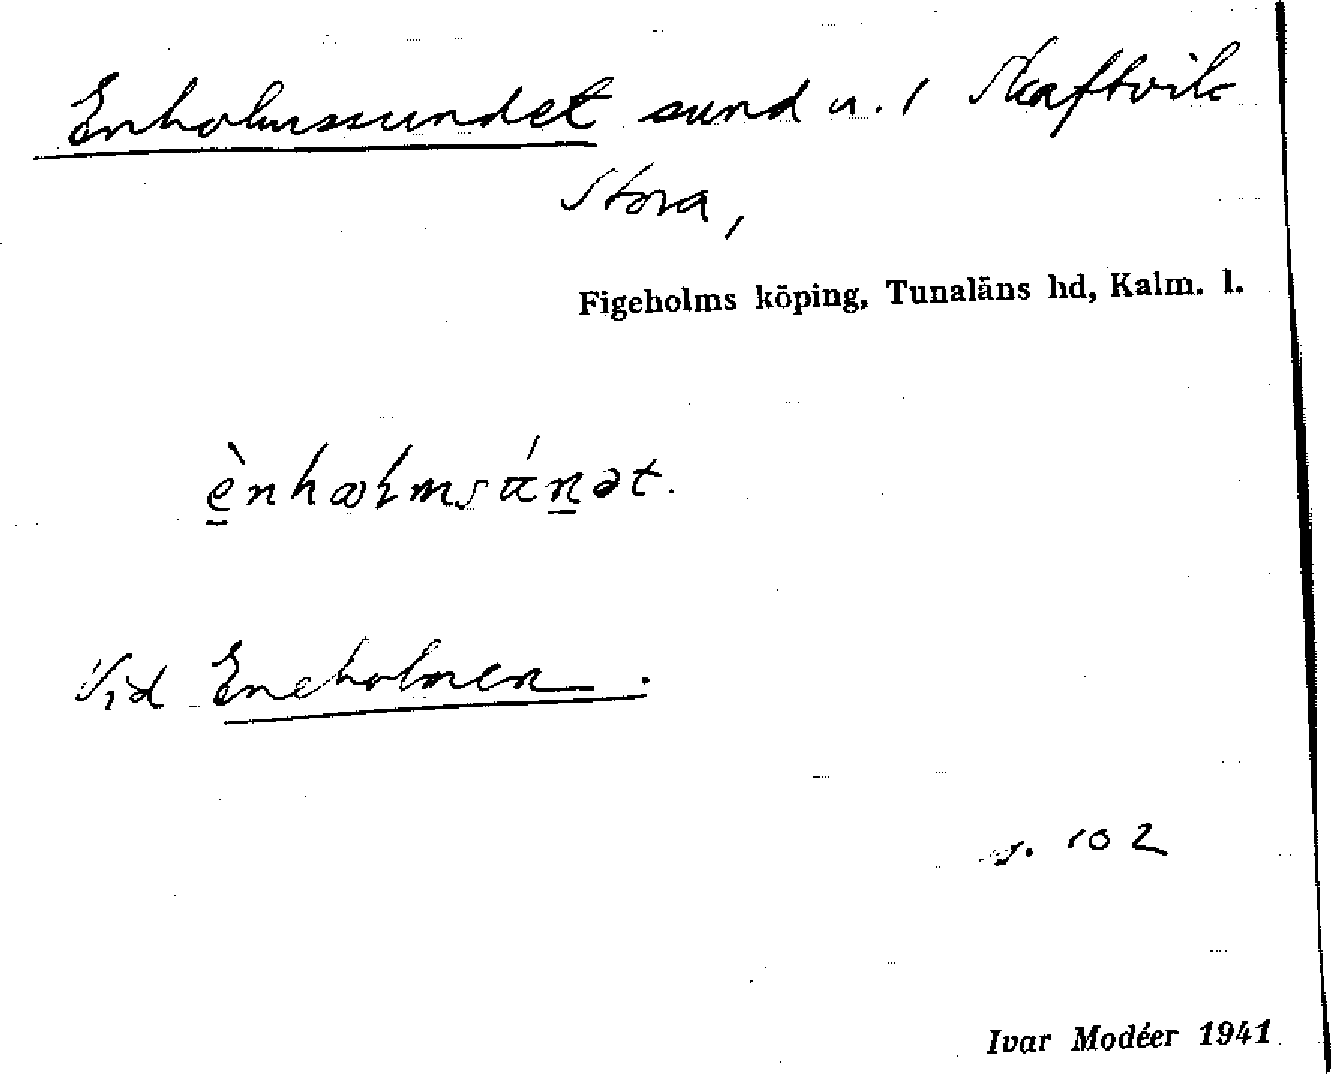 Enholmssundet sund u. 1 Skaftvik
Stora,
Figeholms köping, Tunaläns hd, Kalm. l.
Vid Eneholmen.
s. 102
Ivar Modéer 1941